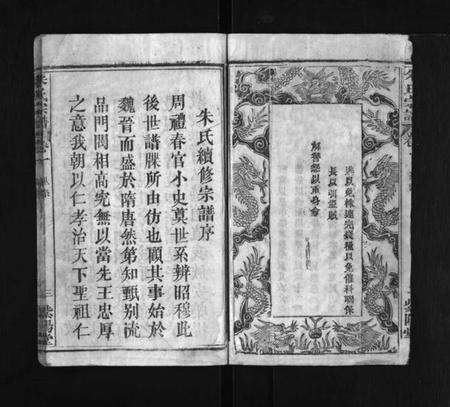 完錢糧以免催科聯保
解讐忿以重身命
朱氏續修宗譜序
周禮春官小史奠世系辨昭穆此
後世譜牒所由仿也顧其事始於
魏晉而盛於隋唐然第知甄別流
品門閥相高究無以當先王忠厚
之意我朝以仁孝治天下聖祖仁
三
紫陽堂